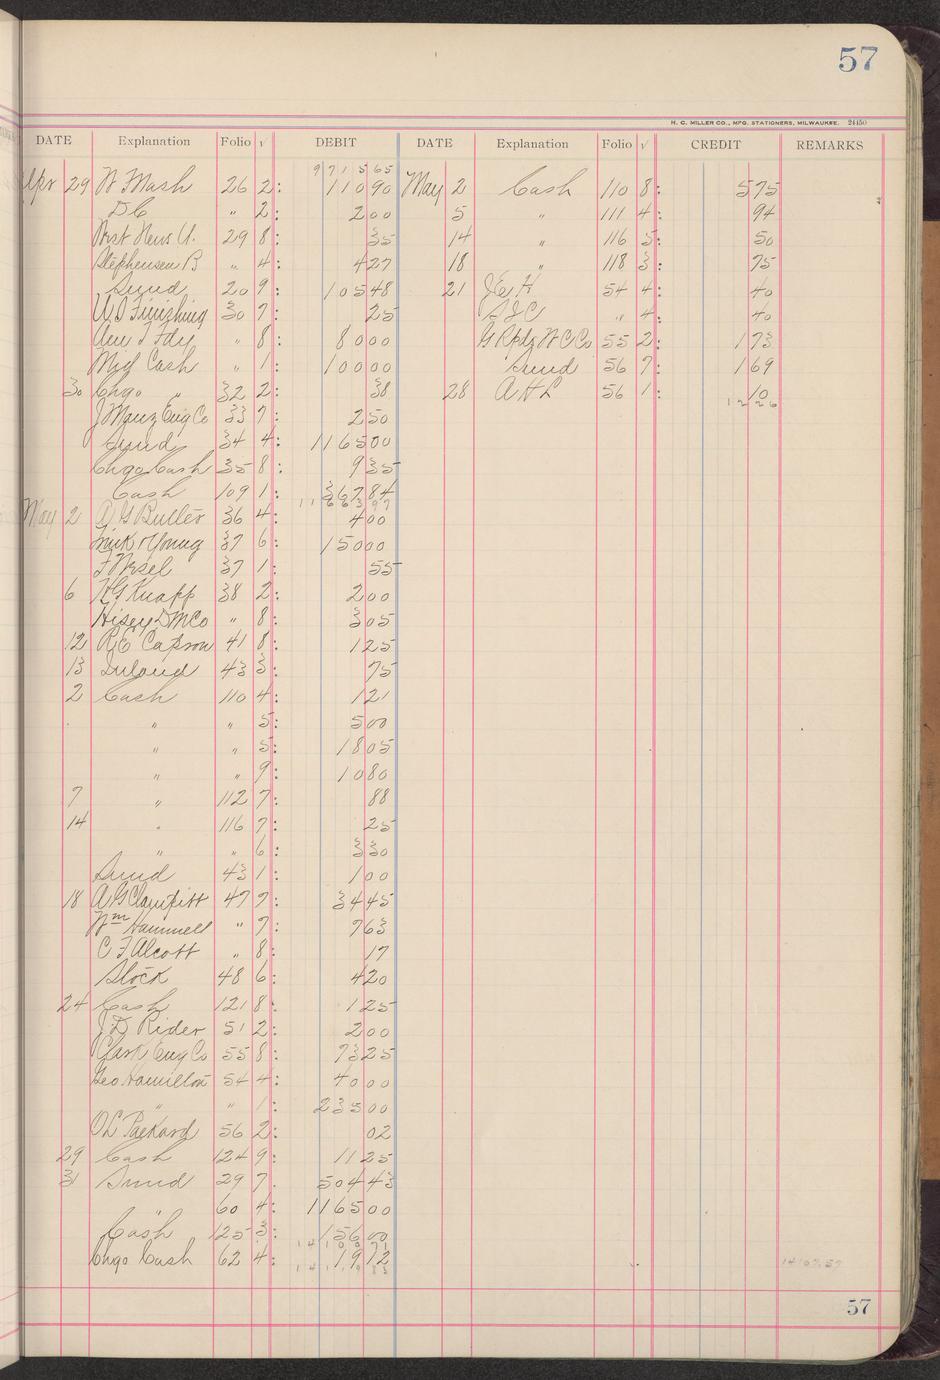 57
H. C. MILLER CO., MFG. STATIONERS, MILWAUKEE. 24450
DATE Explanation Folio √ DEBIT DATE Explanation Folio √ CREDIT REMARKS
971565
Apr 29 W Mash 26 2: 110 90 May 2 Cash 110 8: 5 75
D C " 2: 2 00 5 " 111 4: 94
Wrst Hens U. 29 8: 35 14 " 116 5: 50
Stephensen B " 4: 4 27 18 " 118 3: 75
Sund 20 9: 105 48 21 J E H 54 4: 40
U S Finishing 30 7: 25 S J C " 4: 40
Am T Fdy " 8: 80 00 G Rpds W C Co 55 2: 1 73
Mid Cash " 1: 100 00 Sund 56 7: 1 69
30 Chgo " 32 2: 38 28 A H L 56 1: 10
1226
J Manz Eng Co 33 7: 2 50
Sund 34 4: 1165 00
Chgo Cash 35 8: 9 35
Cash 109 1: 367 84
1166397
May 2 A G Butler 36 4: 4 00
Frick & Young 37 6: 150 00
37 1: 55
6 H G Knapp 38 2: 2 00
Hisey D M Co " 8: 3 05
12 R E Capron 41 8: 1 25
13 Inland 43 3: 75
2 Cash 110 4: 1 21
" " 5: 5 00
" " 5: 18 05
" " 9: 10 80
7 " 112 7: 88
14 " 116 7: 25
" " 6: 3 30
Sund 43 1: 1 00
18 A G Clampitt 47 7: 34 45
Wm Hammell " 7: 7 63
C F Alcott " 8: 17
Stock 48 6: 4 20
24 Cash 121 8: 1 25
J D Rider 51 2: 2 00
Clark Eng Co 55 8: 73 25
Geo Hamilton 54 4: 40 00
" " 1: 235 00
O L Packard 56 2: 02
29 Cash 124 9: 11 25
31 Sund 29 7. 504 43
" 60 4: 1165 00
Cash 125 3: 156 00
Chgo Cash 62 4: 19 12
14107.57
57